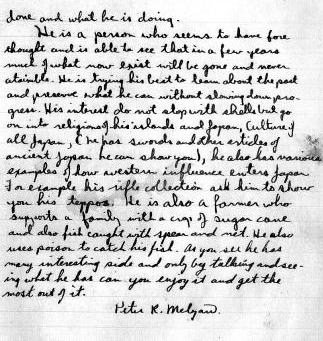 done and what he is doing.
He is a person who seems to have fore
thought and is able to see that in a few years
much of what now exist will be gone and never
atainble. He is trying his best to learn about the past
and preserve what he can without slowing down pro-
gress. His interest do not stop with shells but go
on into religion of his islands and Japan, Culture of
all Japan, (he has swords and other articles of
ancient Japan he can show you), he also has various
examples of how western influence enters Japan.
For example his rifle collection ask him to show
you his teppos. He is also a farmer who
supports a family with a crop of sugar cane
and also fish caught with spear and net. He also
uses poison to catch his fish. As you see he has
many interesting side and only by talking and see-
ing what he has can you enjoy it and get the
most out of it.
Peter R. Melyan.